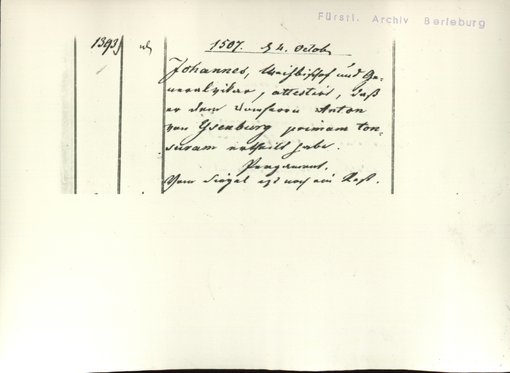 Fürstl. Archiv Berleburg
1393) 1507. 4. Octob
Johannes, Weihbischof und Ge-
neralvikar, attestirt, daß
er dem Domherrn Anton
von Ysenburg primam ton-
suram ertheilt habe.
Pergament.
Vom Siegel ist noch ein Rest.